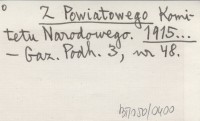 Z Powiatowego Komi-
tetu Narodowego. 1915...
– Gaz. Podh. 3, nr 48.